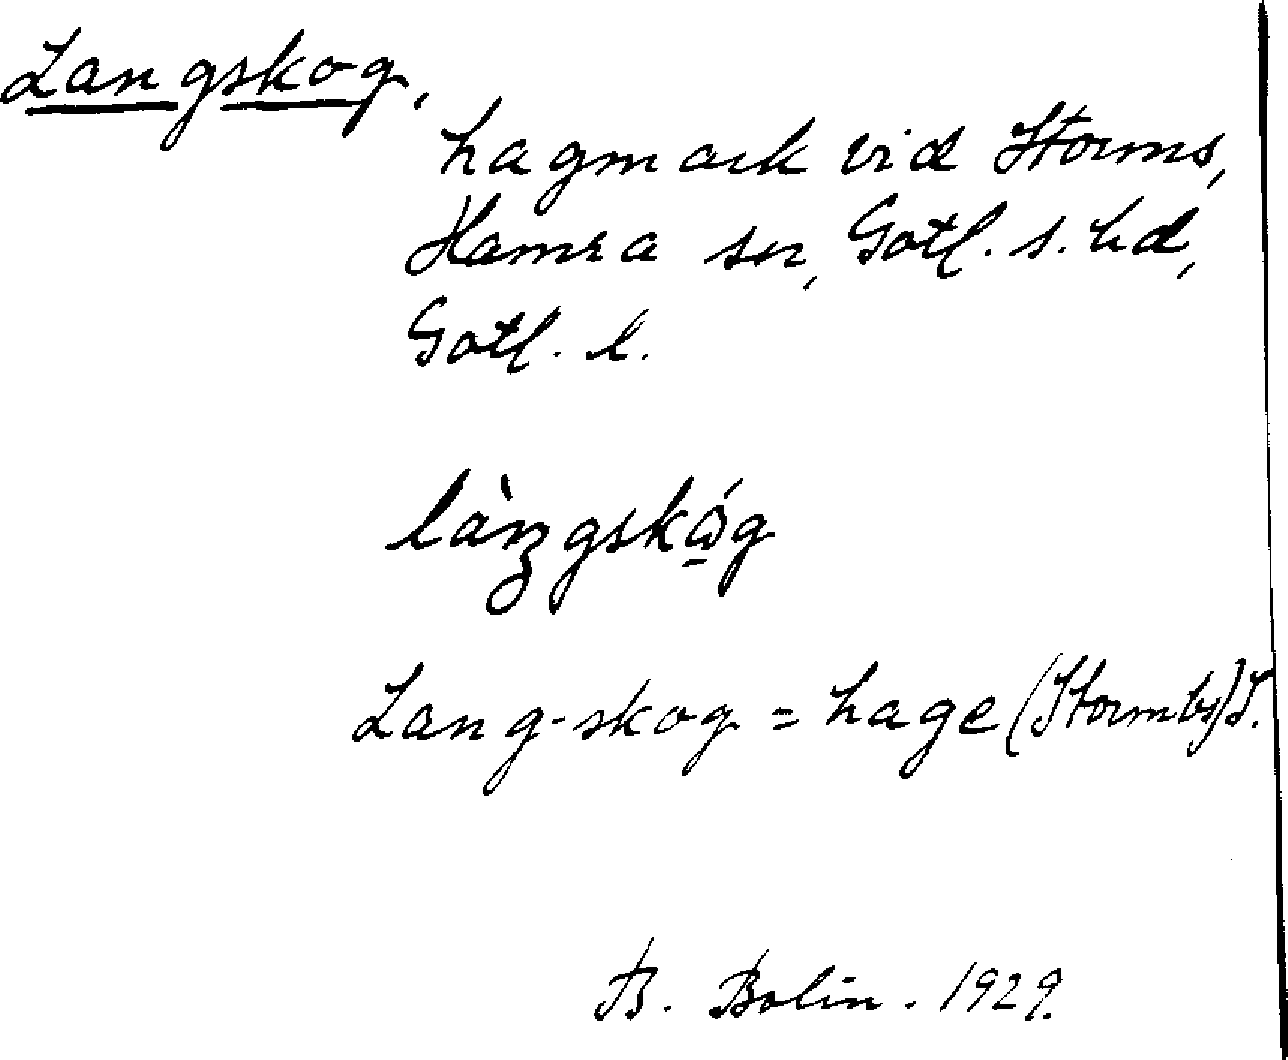 Langskog,
hagmark vid Storms,
Hamra sn, Gotl. s. hd,
Gotl. l.
làŋgskǫ́g
Lang-skog = hage (Stormbs) S.
B. Bolin. 1929.